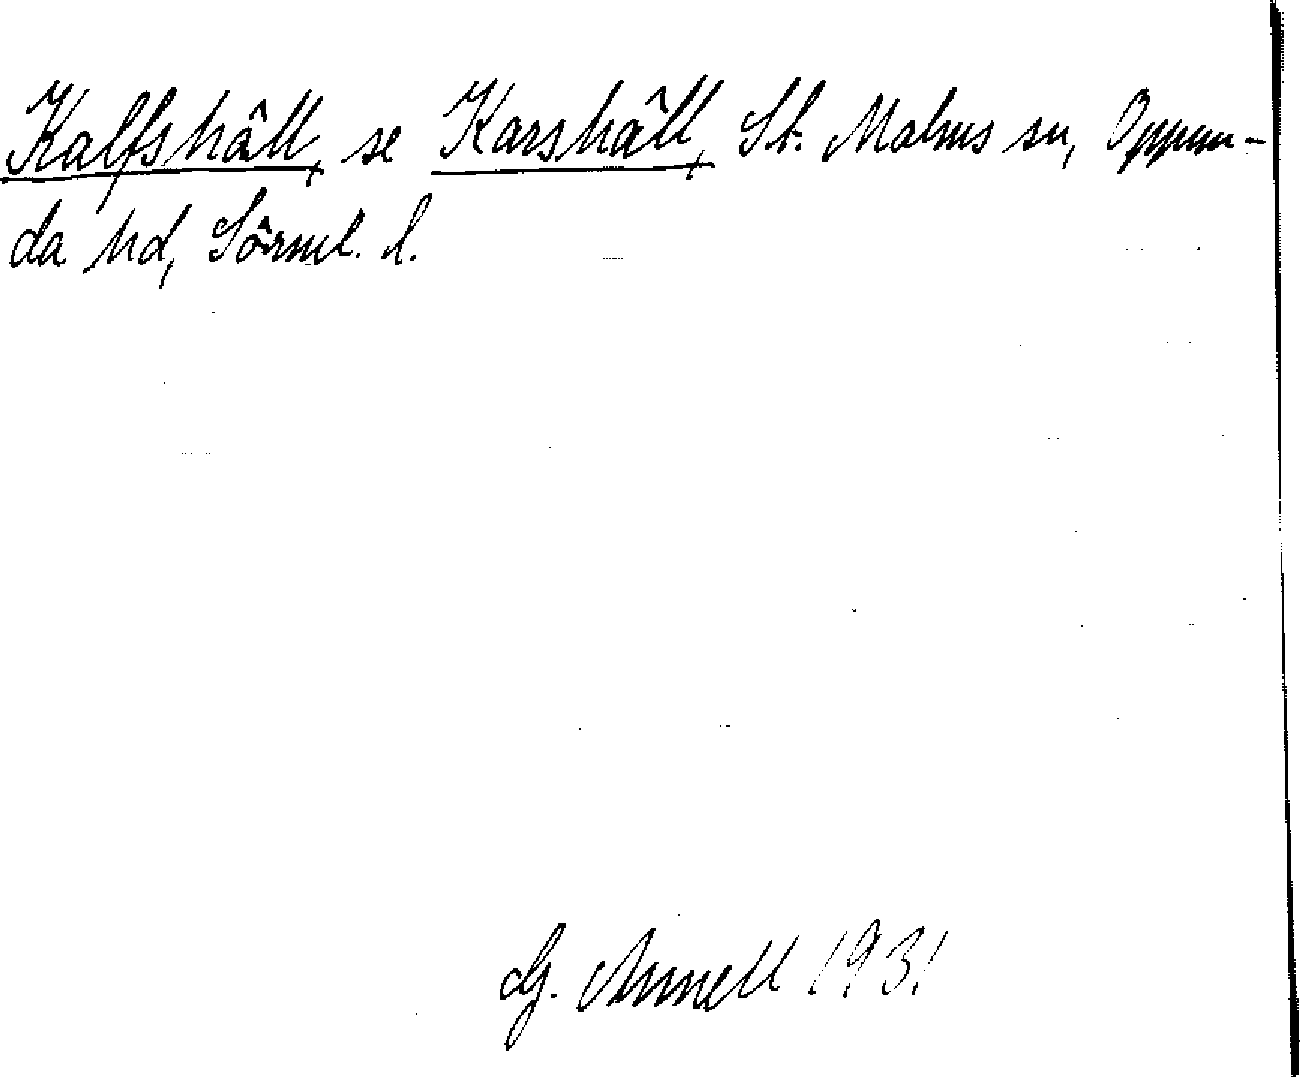 Kalfshäll, se Karshäll, St. Malms sn, Oppun-
da hd, Sörml. l.
G. Arnell 1931